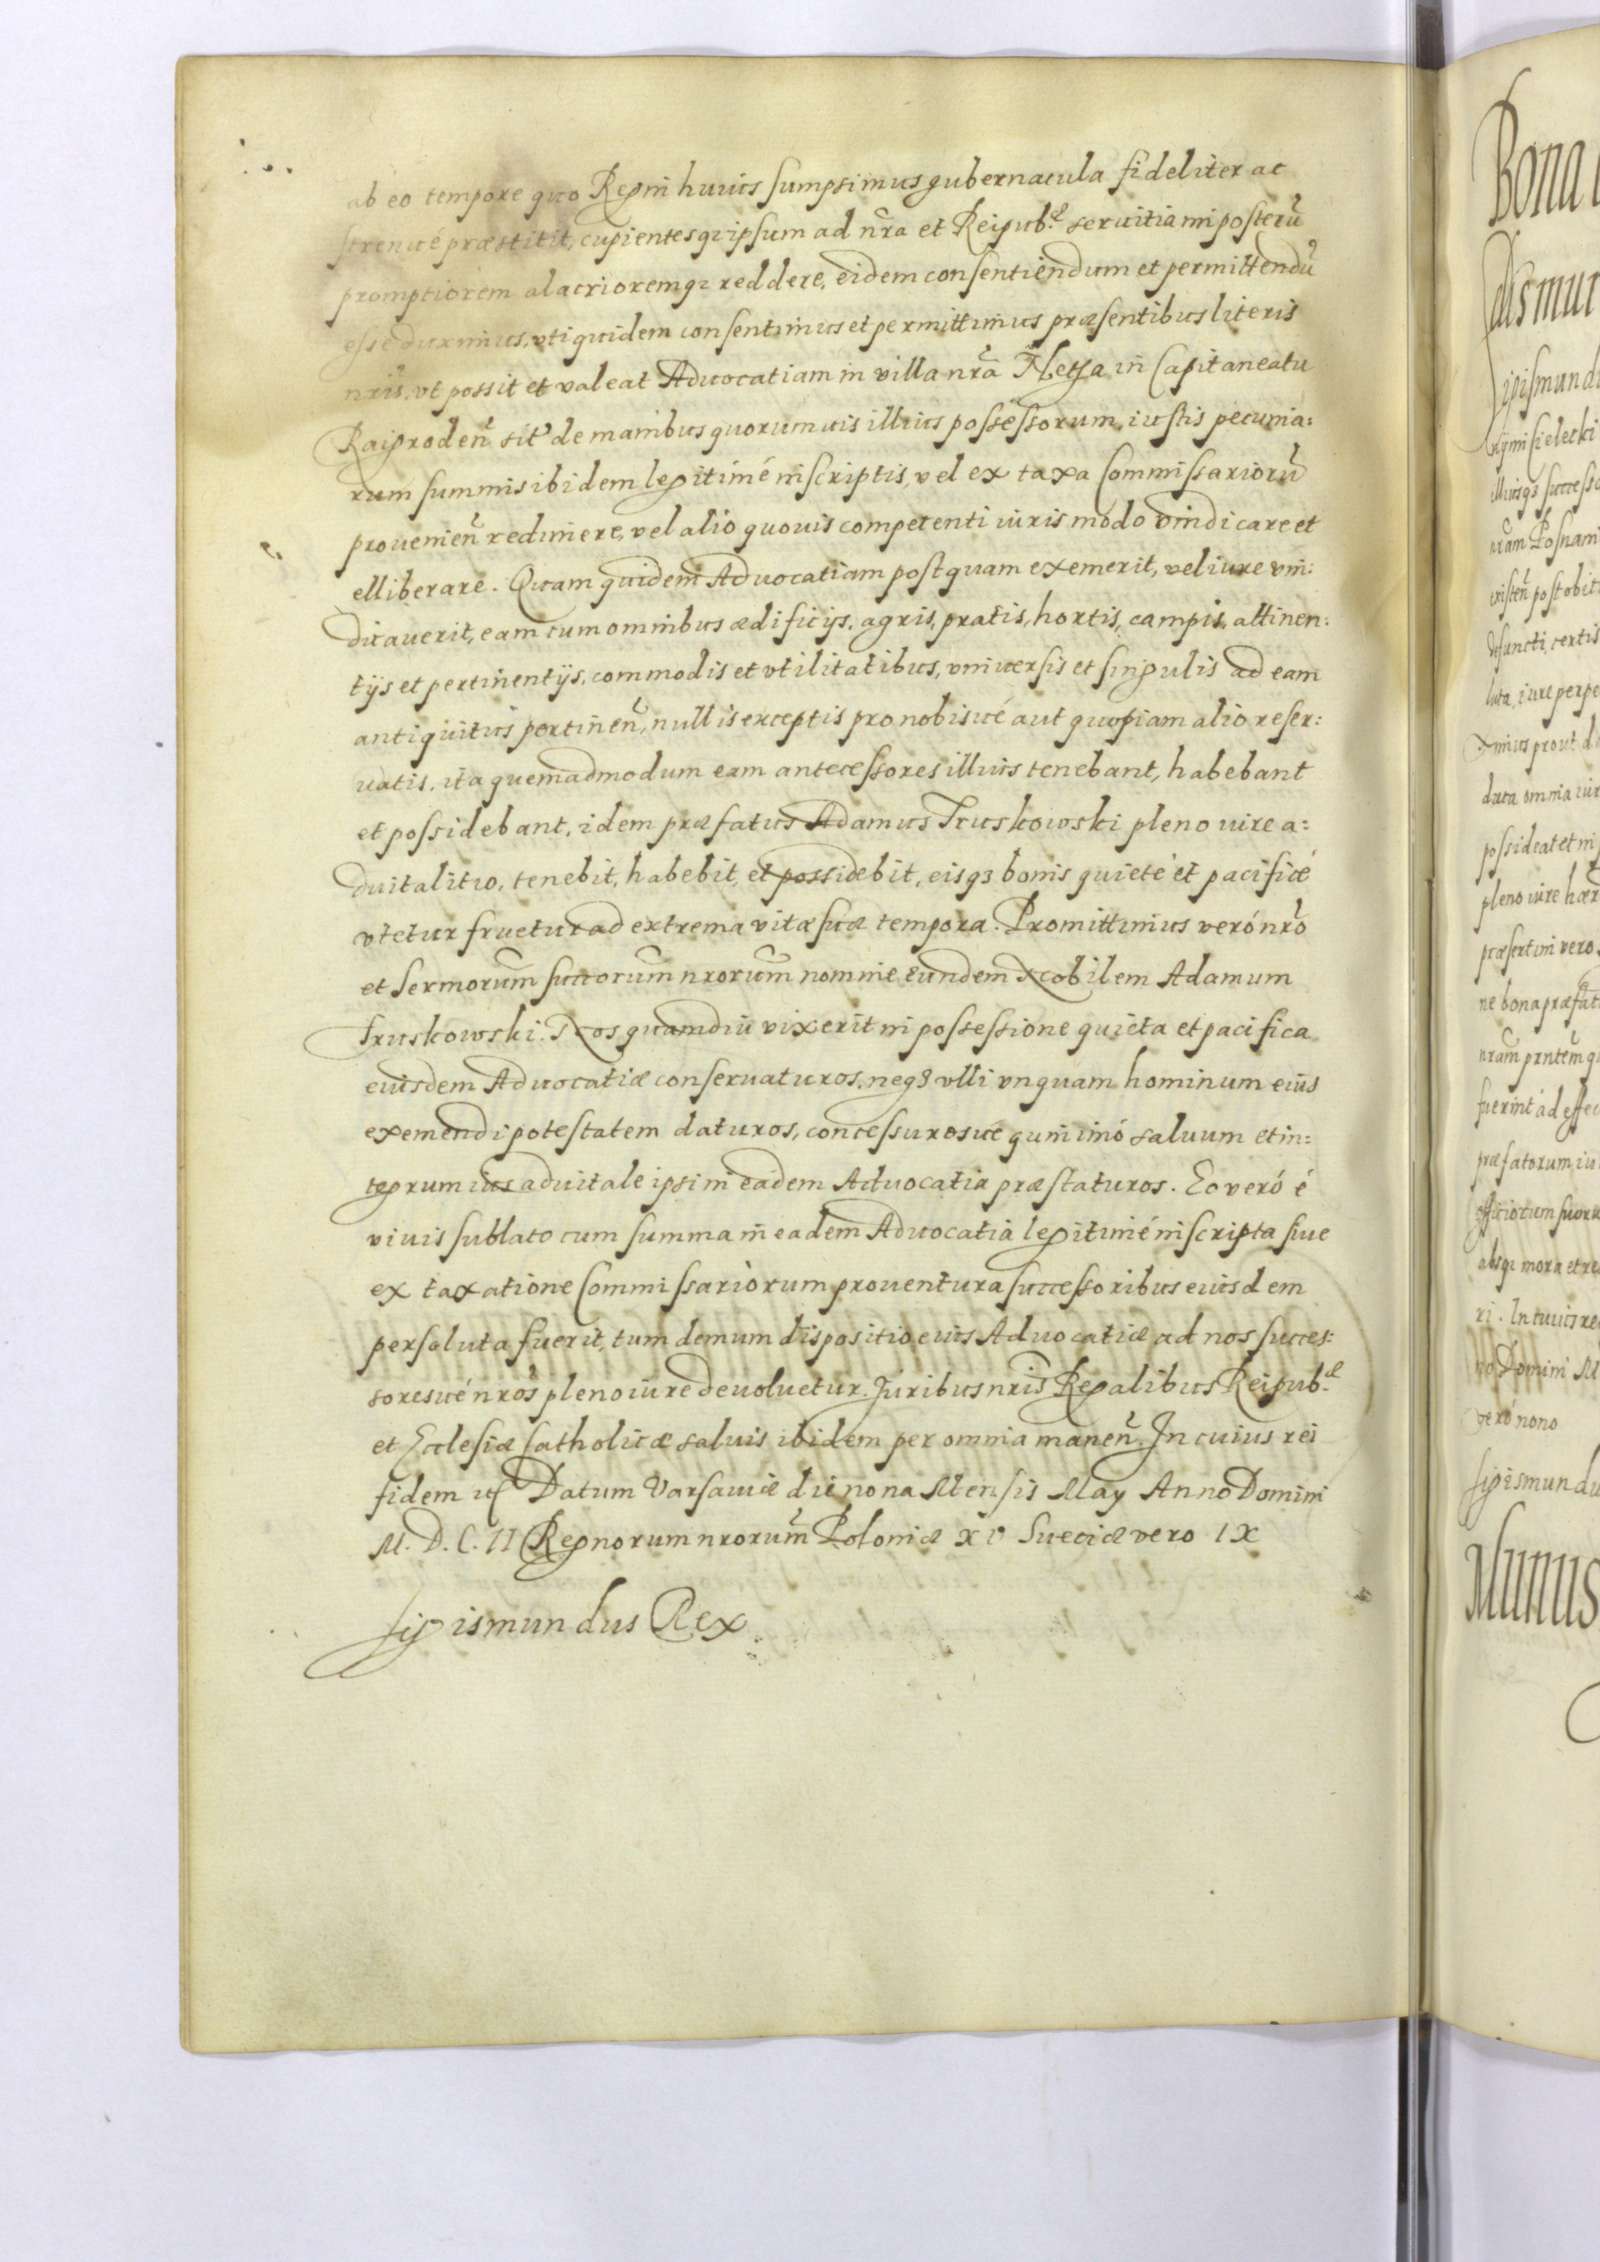 ab eo tempore quo Regni huius sumpsimus gubernacula fideliter ac
strenué præstitit, cupientesqȝ ipsum ad nr̃a et Reipub.ᶜᵉ seruitia in posterũ
promptiorem alacrioremqȝ reddere, eidem consentiendum et permittendũ
esse duximus, vti quidem consentimus et permittimus præsentibus literis
nris, vt possit et valeat Aduocatiam in villa nr̃a in Capitaneatu
Raigroden̄ sit de manibus quorumuis illius possessorum, iustis pecunia:
rum summis ibidem legitimé inscriptis, vel ex taxa Commissariorũ
prouenien̄ redimere, vel alio quouis competenti iuris modo vindicare et
elliberare. Quam quidem Aduocatiam postquam exemerit, vel iure vin:
dicauerit, eam cum omnibus ædificijs, agris, pratis, hortis, campis, attinen:
tijs et pertinentijs, commodis et vtilitatibus, vniuersis et singulis ad eam
antiquitus pertinen̄, nullis exceptis pro nobisué aut quopiam alio reser:
uatis, ita quemadmodum eam antecessores illius tenebant, habebant
et possidebant, idem præfatus Adamus Truskowski pleno iure a:
duitalitio, tenebit, habebit, et possidebit, eisqȝ bonis quieté et pacificé
vtetur fruetur ad extrema vitæ suæ tempora. Promittimus veró nr̃o
et Sermorum̃ succorum̃ nrorum̃ nomine eundem Nobilem Adamum
Truskowski. Nos quamdiu vixerit in possessione quieta et pacifica
eiusdem Aduocatiæ conseruaturos, neqȝ vlli vnquam hominum eius
exemendi potestatem daturos, concessurosué quin imó saluum et in:
tegrum ius aduitale ipsi in eadem Aduocatia præstaturos. Eo veró é
viuis sublato cum summa in eadem Aduocatia legitimé inscripta siue
ex taxatione Commissariorum prouentura successoribus eiusdem
persoluta fuerit, tum demum dispositio eius Aduocatiæ ad nos succes:
soresué nros̃ pleno iure deuoluetur. Juribus nris̃ Regalibus Reipub.ᶜᵉ
et Ecclesiæ Catholicæ saluis ibidem per omnia manen̄. In cuius rei
fidem etc Datum Varsauiæ die nona Mensis May Anno Domini
M. D. C. II Regnorum nrorum̃ Poloniæ XV Sueciæ vero IX
Sigismundus Rex
Bona
Sigismundi
illiusqȝ
nram̃ Posnani
existen̄ post obit
defuncti, certis
iure perpe
ximus prout
omnia iur
possideat et
pleno iure
præsertim vero
ne bona præfat
nram̃
fuerint ad effec
præfatorum, iu
absqȝ mora et re
ri. In cuius re
no Domini M
veró nono
Sigismundu
Munus